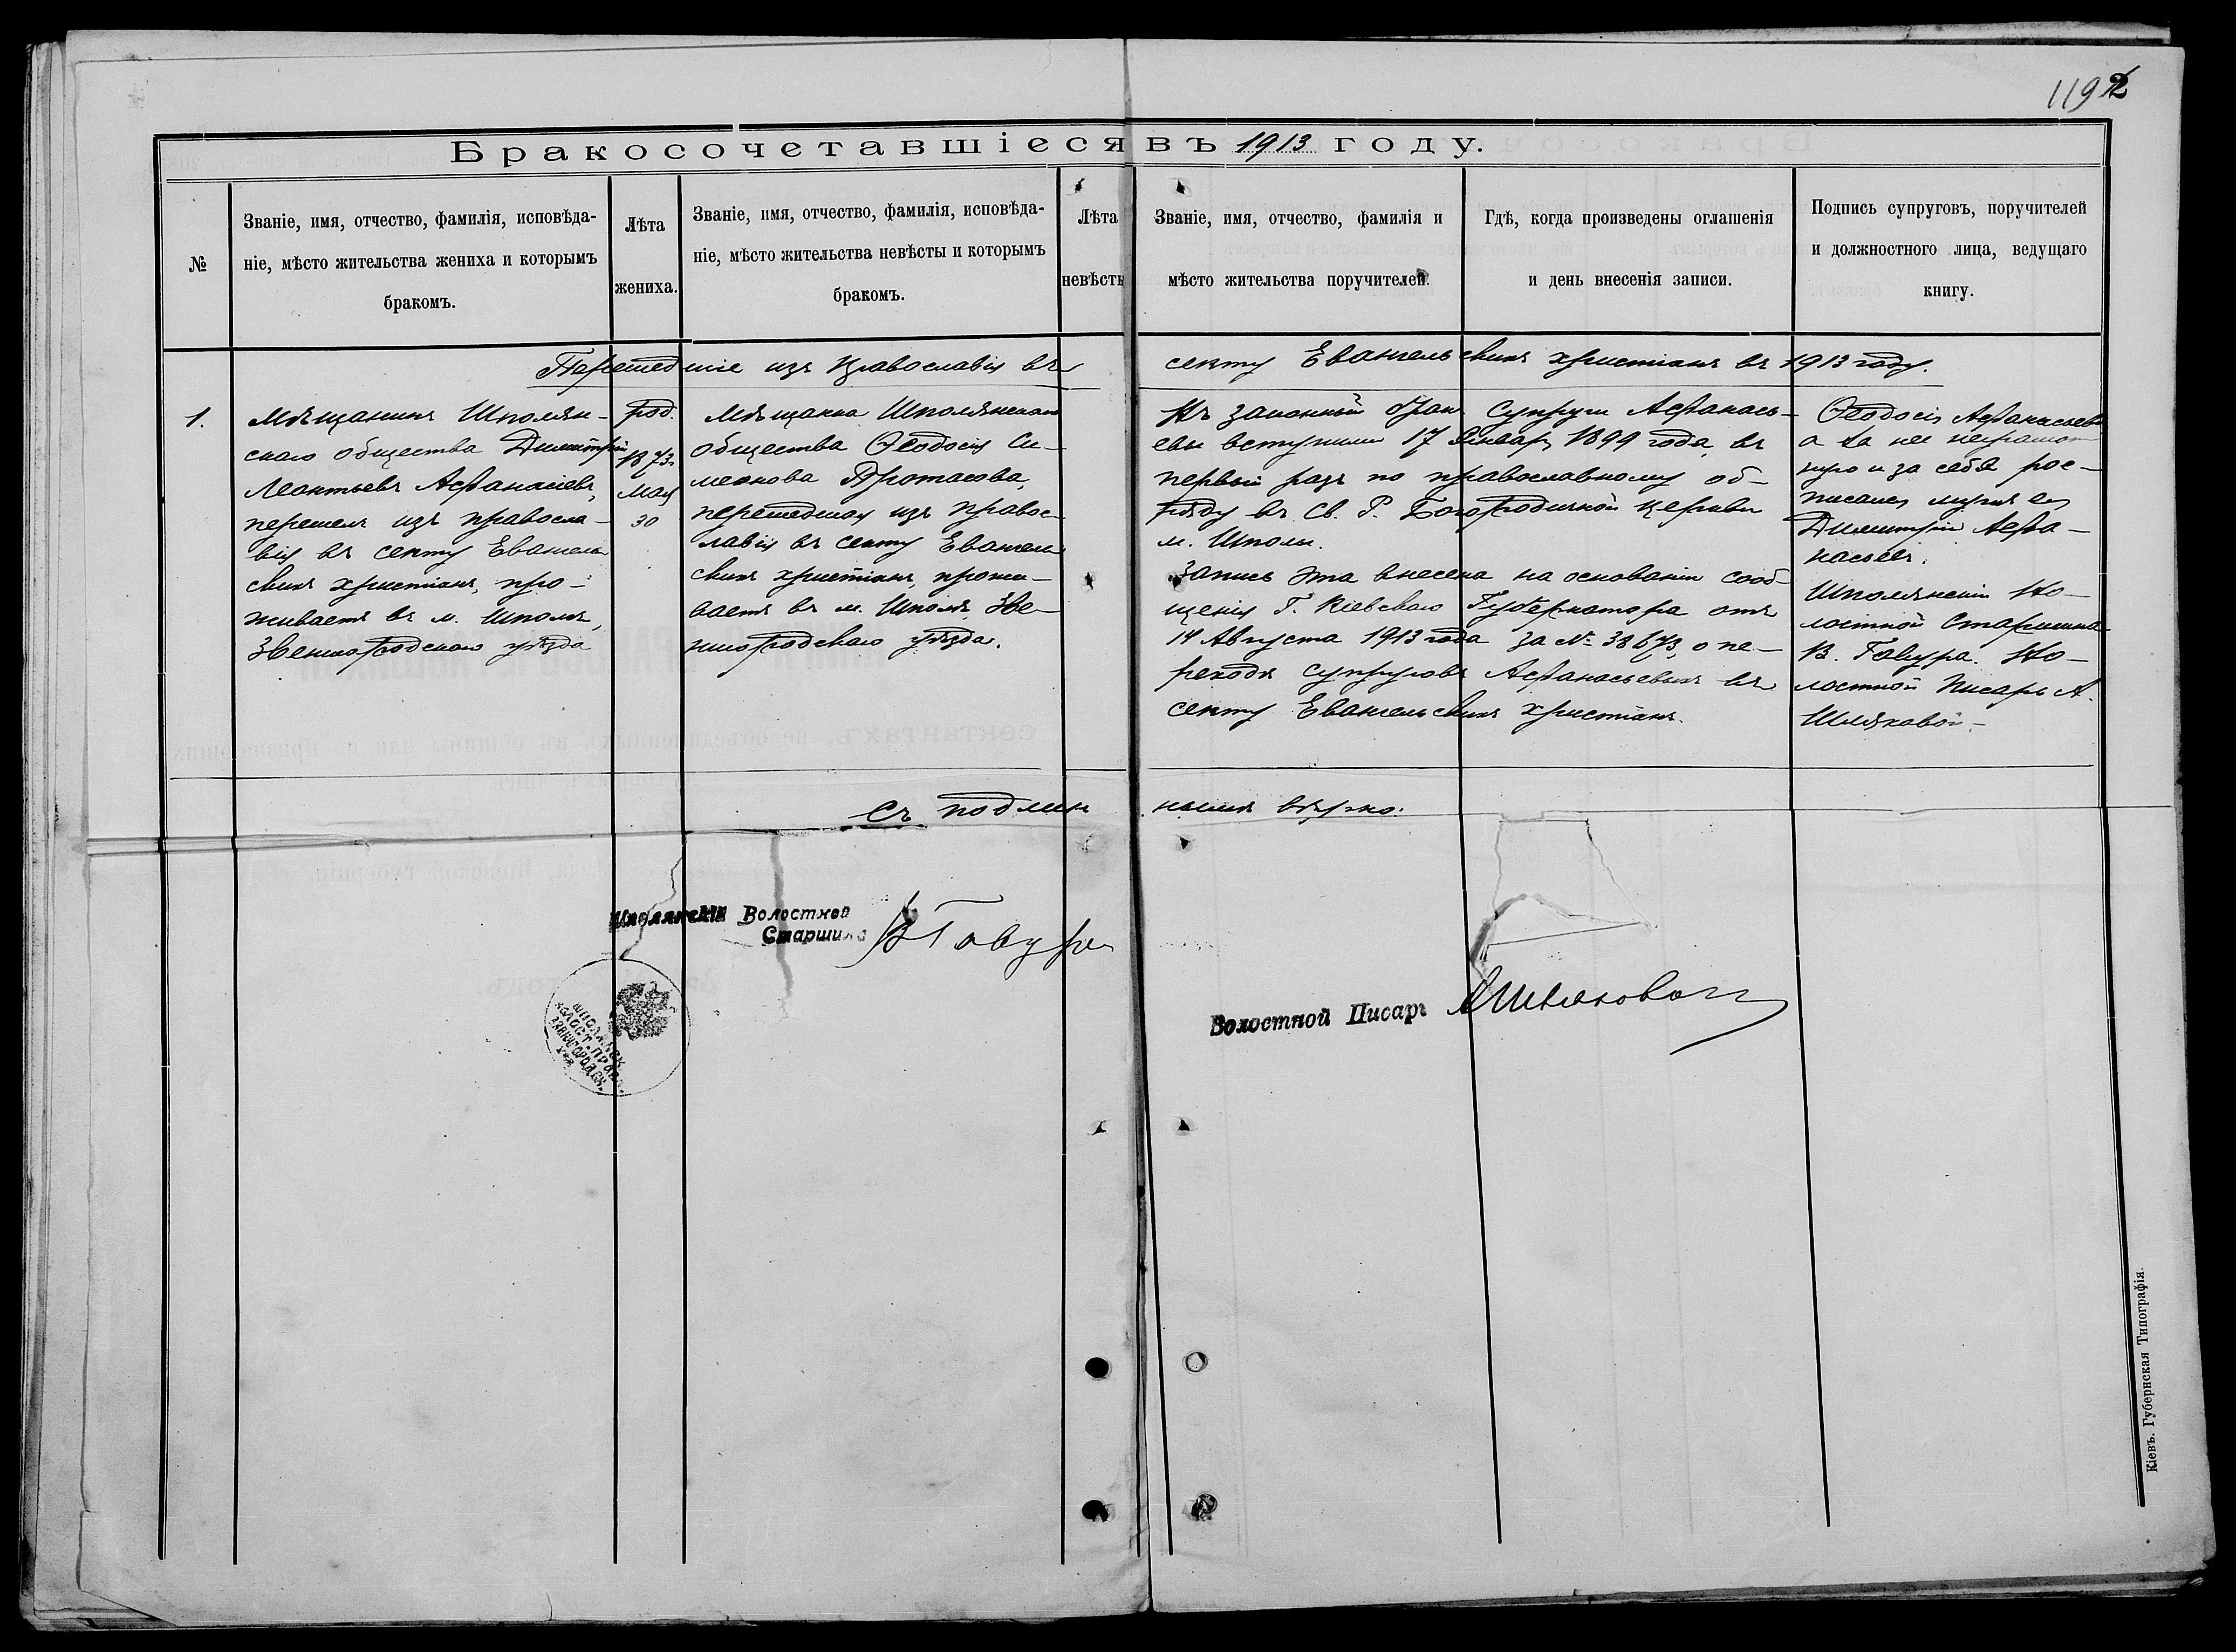 1192
Бракосочетавшіеся въ 1913 году.
№
Званіе, имя, отчество, фамилія, исповѣда-
ніе, мѣсто жительства жениха и которымъ
бракомъ.
Лѣта
жениха.
Званіе, имя, отчество, фамилія, исповѣда-
ніе, мѣсто жительства невѣсты и которымъ
бракомъ.
Лѣта
невѣсты
Званіе, имя, отчество, фамилія и
мѣсто жительства поручителей.
Гдѣ, когда произведены оглашенія
и день внесенія записи.
Подпись супруговъ, поручителей
и должностного лица, ведущаго
книгу.
Перешедшіе изъ православія въ секту Евангельскихъ христіанъ въ 1913 году.
1.
Мѣщанинъ Шполян-
скаго общества Димитрій
Леонтьевъ Афанасіевъ,
перешелъ изъ правосла-
вія въ секту Евангель
скихъ христіанъ, про-
живаетъ въ м. Шполѣ,
Звенигородскаго уѣзда
род.
1873г.
Мая
30
Мѣщанка Шполянскаго
общества Ѳеодосія Си-
меонова Протасова,
перешедшая изъ правос-
лавія въ секту Евангель
скихъ христіанъ, прожи-
ваетъ въ м. Шполѣ, Зве-
нигородскаго уѣзда.
Въ законный бракъ супруги Афанась-
евы вступили 17 Января 1899 года, въ
первый разъ по православному об-
ряду въ Св. Р. Богородичной церкви
м. Шполы.
Запись эта внесена на основаніи сооб-
щенія Г. Кіевскаго Губернатора отъ
14 Августа 1913 года за № 38673, о пе-
реходѣ супруговъ Афанасьевыхъ въ
секту Евангельскихъ христіанъ.
Ѳеодосія Афанасьева
а за нее неграмот
ную и за себя рос-
писался мужъ ея
Димитрій Афа-
насьевъ.
Шполянскій Во-
лостной Старшина
В. Говура. Во-
лостной Писарь А.
Шляховой
Съ подлиннымъ вѣрно:
Шполянскій Волостной
Старшина ВГовура
ШПОЛЯНСК
ВОЛОСТ. ПРАВ
ЗВЕНИГОРОДСК.
УѢЗ
Волостной Писарь АШляховой
Кіевъ. Губернская Типографія.